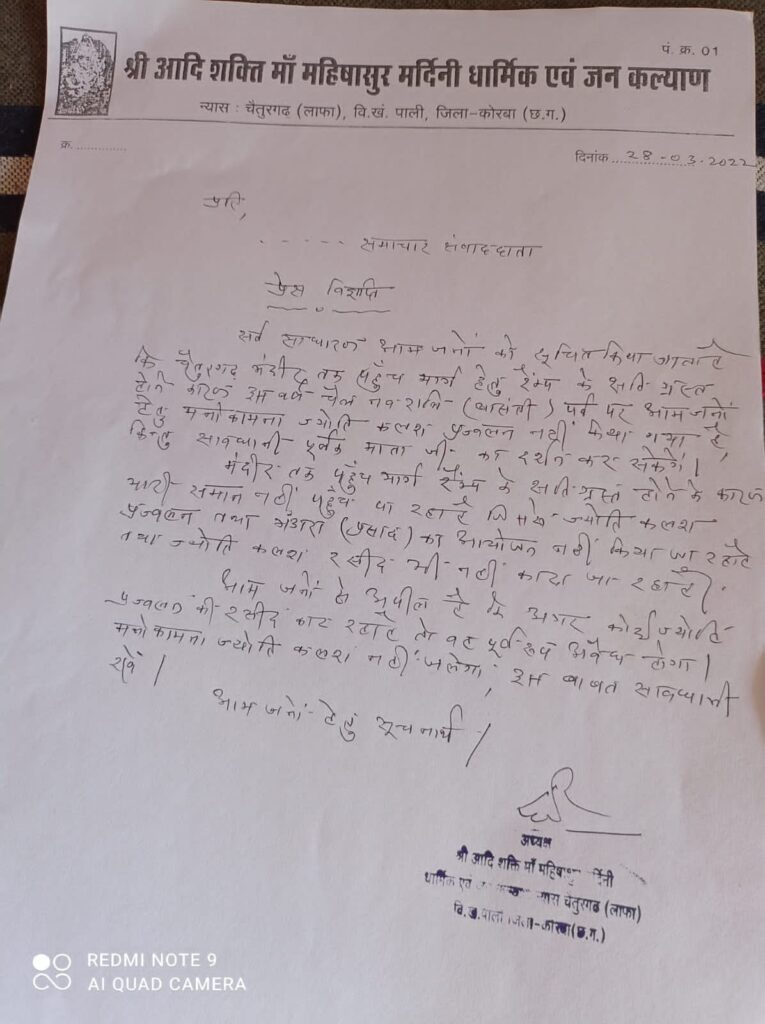 पं. क्र. 01
श्री आदि शक्ति माँ महिषासुर मर्दिनी धार्मिक एवं जन कल्याण
न्यास : चैतुरगढ़ (लाफा), वि.खं. पाली, जिला-कोरबा (छ.ग.)
क्र. .............
दिनांक 28-03-2022
प्रति,
..... समाचार संवाददाता
प्रेस विज्ञप्ति
सर्व साधारण आम जनों को सूचित किया जाता है
कि चैतुरगढ़ मंदीर तक पहुँच मार्ग हेतु रैम्प के क्षति ग्रस्त
होने कारण इस वर्ष चैत्र नवरात्रि (वासंती) पर्व पर आम जनों
हेतु मनोकामना ज्योति कलश प्रज्वलन नहीं किया गया है,
किन्तु सावधानी पूर्वक माता जी का दर्शन कर सकेगें।
मंदीर तक पहुँच मार्ग रैम्प के क्षतिग्रस्त होने के कारण
भारी समान नहीं पहुँच पा रहा है जिससे ज्योति कलश
प्रज्वलन तथा भंडारा (प्रसाद) का आयोजन नहीं किया जा रहा है
तथा ज्योति कलश रसीद भी नहीं काटा जा रहा है।
आम जनों से अपील है कि अगर कोई ज्योति
प्रज्वलन की रसीद काट रहा है तो वह पूर्ण रूप अवैध होगा।
मनोकामना ज्योति कलश नहीं जलेगा, इस बाबत सावधानी
रखें।
आम जनों हेतु सूचनार्थ।
अध्यक्ष
श्री आदि शक्ति माँ महिषा मर्दिनी
धार्मिक एवं चैतुरगढ (लाफा)
वि.ख.पाली जिला-कोरबा(छ.ग.)
REDMI NOTE 9
AI QUAD CAMERA